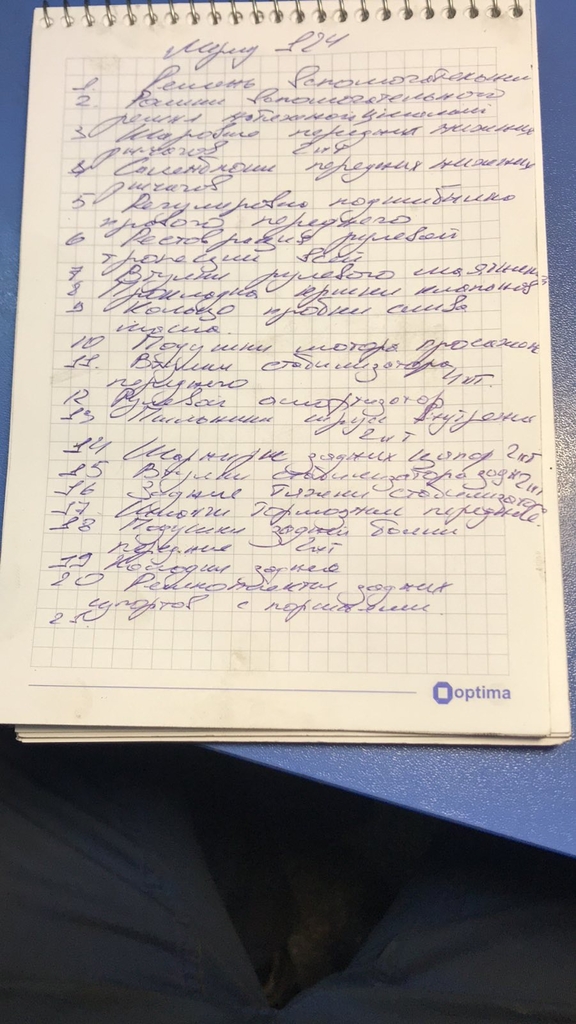 Мерц 124
1 Ремень вспомогательный
2 Ролики вспомогательного
ремня натяжной
3 Шаровые передних нижних
рычагов 2 шт
4 Саленблоки передних нижних
рычагов
5 Регулировка подшибника
правого переднего
6 Рестоврация рулевой
трапеции
7 Втулки рулевого маятника
8 Прокладка крышки клапанов
9 Кольцо пробки слива
масла.
10 Подушки мотора просажен
11. Втулки стабилизатора
переднего 4 шт.
12 Рулевой амортизатор
13 Пыльники шруса внутрени
2 шт
14 Шарниры задних цапф 2 шт
15 Втулки стабилизатора задн 2 шт
16 Задние тяжени стабилизатора
17. Шланги Тормозные передние.
18 Подушки задней балки
передние 2 шт
19 Колодки заднее
20 Ремкомплекты задних
супортов с поршнями
21.
optima